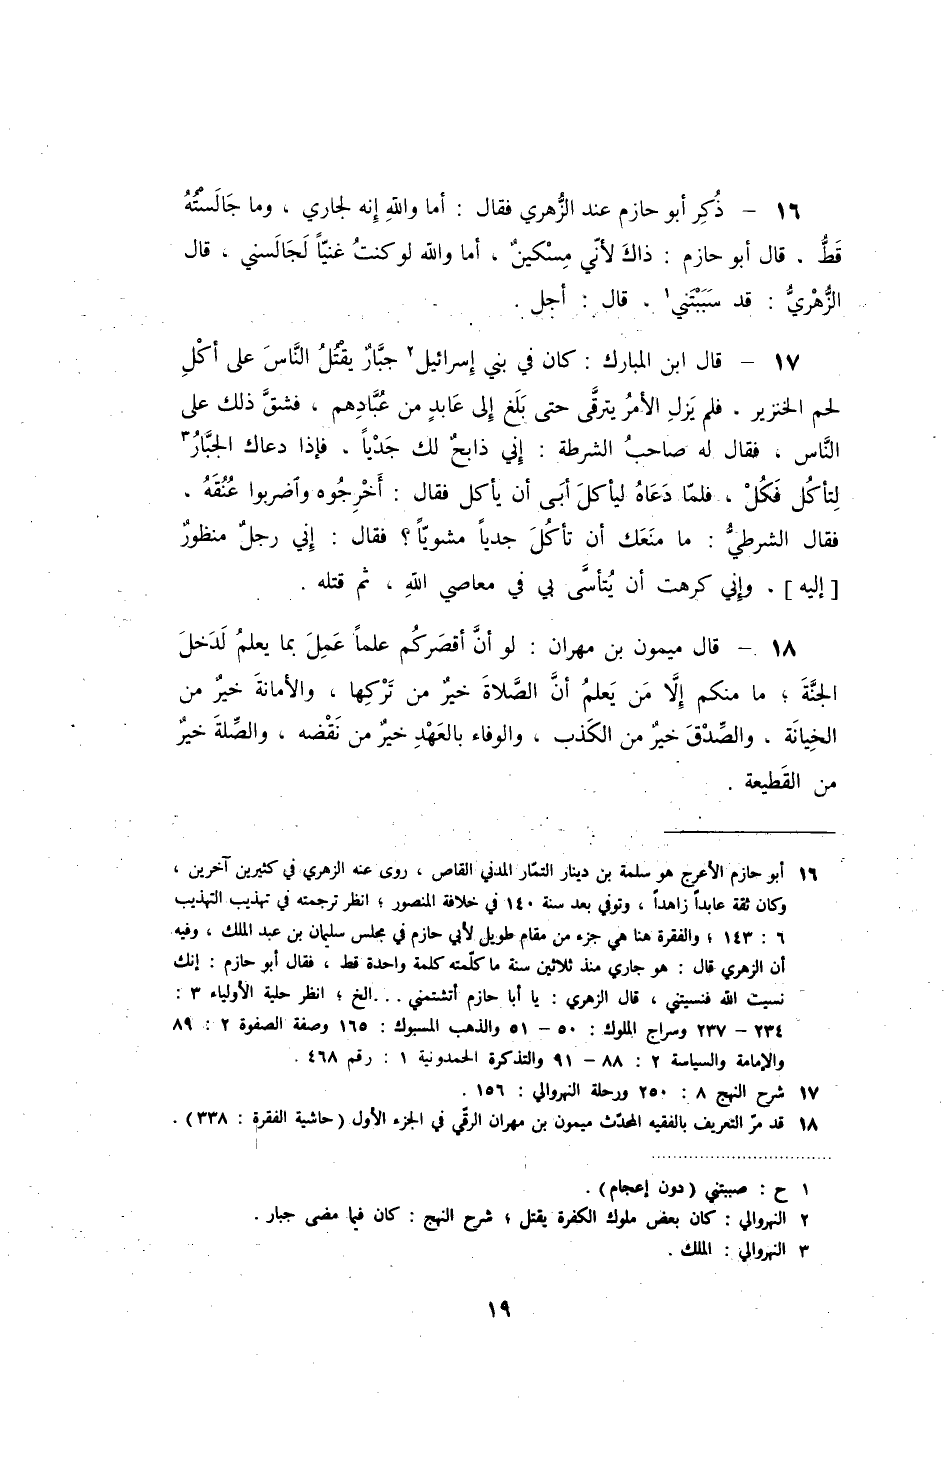 ١٦ – ذُكِر أبو حازم عند الزُّهري فقال : أما واللهِ إنه لجاري ، وما جَالَسْتُهُ
قَطُّ . قال أبو حازم : ذاكَ لأنّي مِسْكينٌ ، أما والله لو كنتُ غنيّاً لَجَالسني ، قال
الزُّهْريُّ : قد سَبَبْتَني١ . قال : أجل .
١٧ – قال ابن المبارك : كان في بني إسرائيل٢ جبَّارٌ يقْتُلُ النَّاسَ على أكْلِ
لحم الخنزير . فلم يَزلِ الأمرُ يترقَّى حتى بَلَغ إلى عَابدٍ من عُبَّادِهم ، فشقَّ ذلك على
النَّاس ، فقال له صاحبُ الشرطة : إني ذابحٌ لك جَدْياً . فإذا دعاك الجبَّارُ٣
لِتأكُل فَكُلْ ، فلمّا دَعَاهُ ليأكلَ أبَى أن يأكل فقال : أخْرِجُوه وآضربوا عُنُقَهُ .
فقال الشرطيُّ : ما منَعَك أن تأكُلَ جدياً مشويّاً ؟ فقال : إني رجلٌ منظورٌ
[ إليه ] . وإني كرهت أن يُتأسَّى بي في معاصي اللهِ ، ثم قتله .
١٨ – قال ميمون بن مهران : لو أنَّ أقصَركُم علماً عَمِلَ بما يعلمُ لَدَخلَ
الجنَّةَ ؛ ما منكم إلَّا مَن يَعلمُ أنَّ الصَّلاةَ خيرٌ من تَرْكِها ، والأمانةَ خيرٌ من
الخِيانَة . والصِّدْقَ خيرٌ من الكَذب ، والوفاء بالعَهْدِ خيرٌ من نَقْضه ، والصِّلةَ خيرٌ
من القَطيعة .
١٦ أبو حازم الأعرج هو سلمة بن دينار التمّار المدني القاص ، روى عنه الزهري في كثيرين آخرين ،
وكان ثقة عابداً زاهداً ، وتوفي بعد سنة ١٤٠ في خلافة المنصور ؛ انظر ترجمته في تهذيب التهذيب
٦ : ١٤٣ ؛ والفقرة هنا هي جزء من مقام طويل لأبي حازم في مجلس سليمان بن عبد الملك ، وفيه
أن الزهري قال : هو جاري منذ ثلاثين سنة ما كلّمته كلمة واحدة قط ، فقال أبو حازم : إنك
نسيت الله فنسيتني ، قال الزهري : يا أبا حازم أتشتمني ...الخ ؛ انظر حلية الأولياء ٣ :
٢٣٤ – ٢٣٧ وسراج الملوك : ٥٠ – ٥١ والذهب المسبوك : ١٦٥ وصفة الصفوة ٢ : ٨٩
والإمامة والسياسة ٢ : ٨٨ – ٩١ والتذكرة الحمدونية ١ : رقم ٤٦٨ .
١٧ شرح النهج ٨ : ٢٥٠ ورحلة النهروالي : ١٥٦ .
١٨ قد مرّ التعريف بالفقيه المحدّث ميمون بن مهران الرقّي في الجزء الأول ( حاشية الفقرة : ٣٣٨ ) .
١ ح : صببتني ( دون إعجام ) .
٢ النهروالي : كان بعض ملوك الكفرة يقتل ؛ شرح النهج : كان فيما مضى جبار .
٣ النهروالي : الملك .
١٩